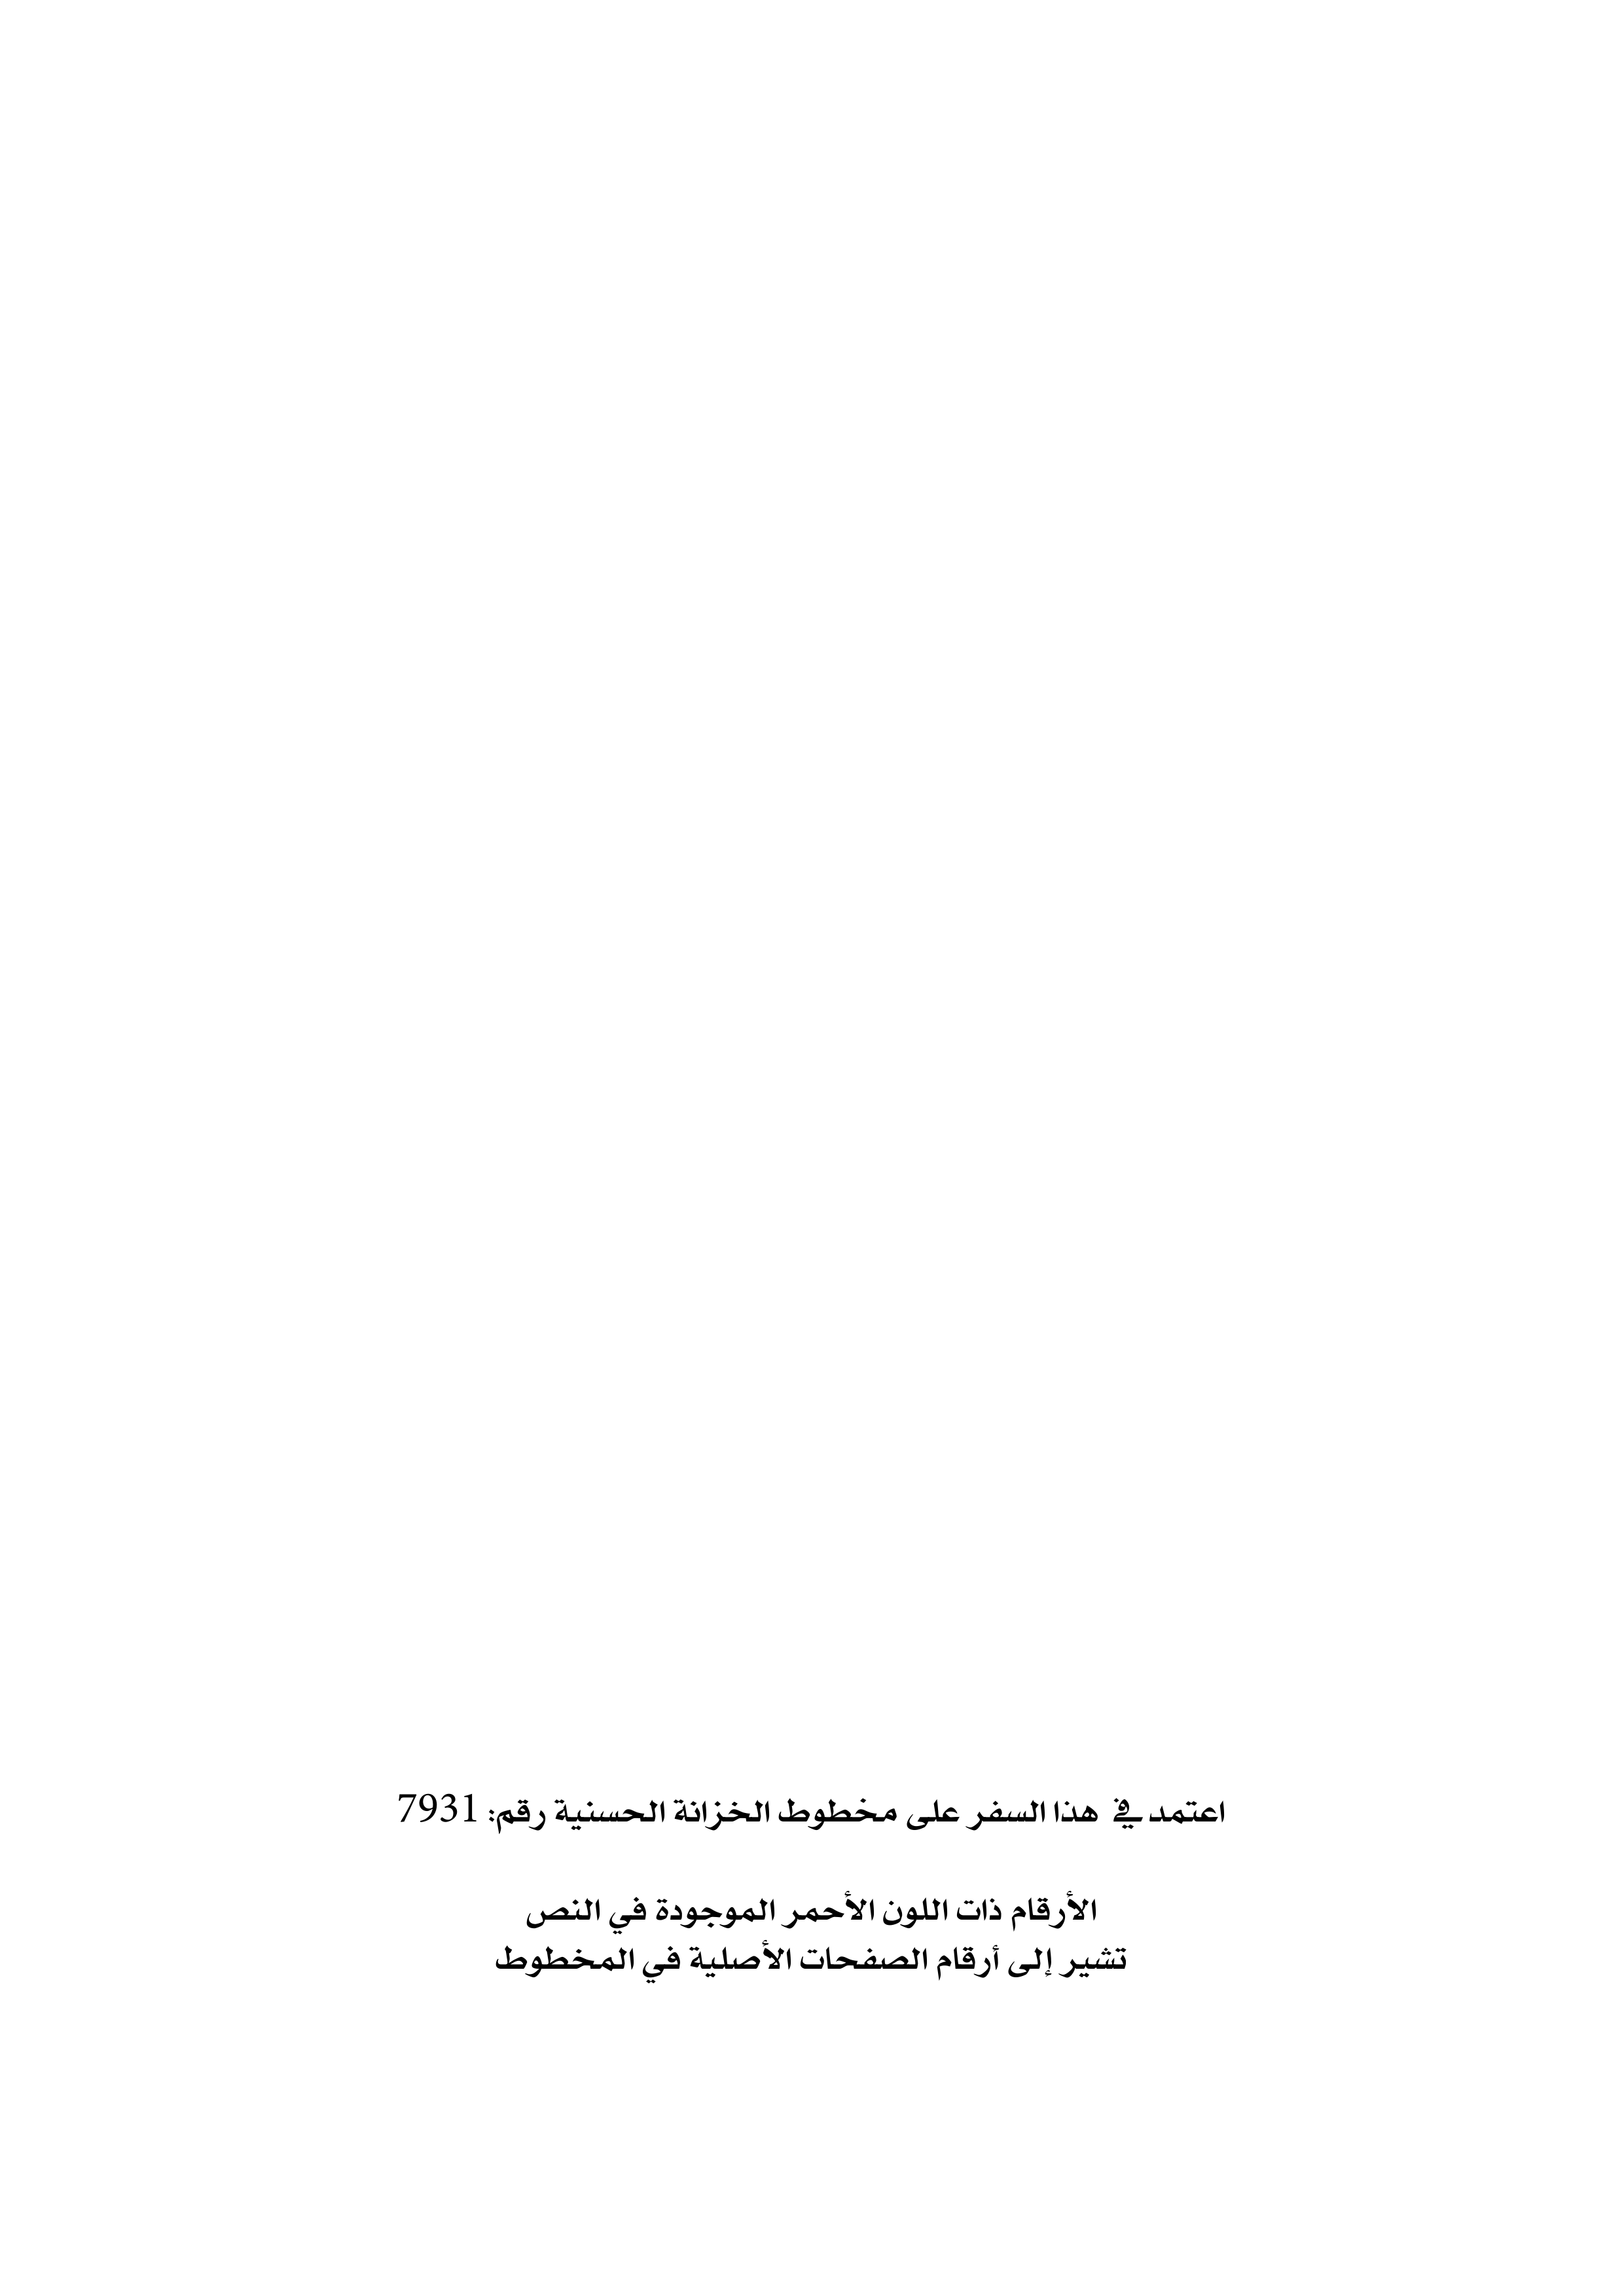 اعتمد في هذا السفر على مخطوط الخزانة الحسنية رقم: 7931
الأرقام ذات اللون الأحمر الموجودة في النص
تشير إلى أرقام الصفحات الأصلية في المخطوط